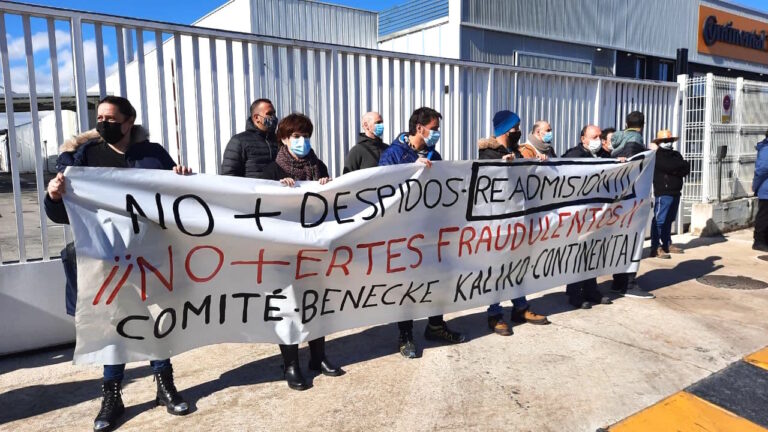 Continental
NO + DESPIDOS - READMISIÓN!!!
¡¡NO + ERTES FRAUDULENTOS!!
COMITÉ - BENECKE KALIKO - CONTINENTAL